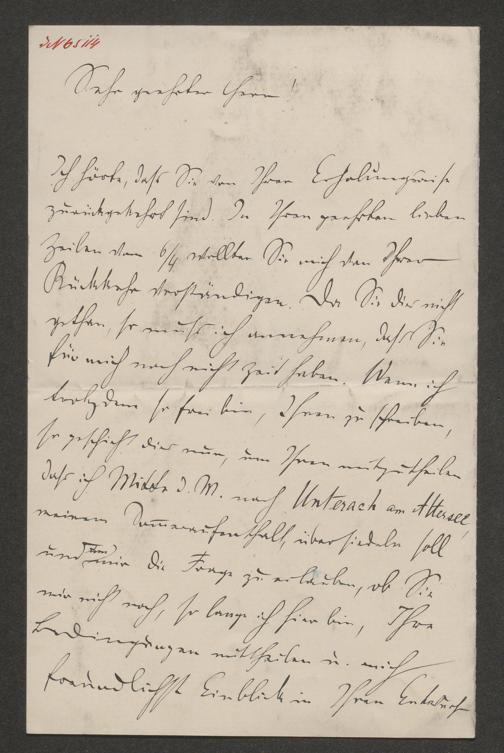 Sehr geehrter Herr!
Ich hörte, dass Sie von Ihrer Erholungsreise
zurückgekehrt sind. In Ihren geehrten lieben
Zeilen vom 6/4 wollten Sie mich von Ihrer
Rückkehr verständigen. Da Sie dies nicht
gethan, so muss ich annehmen, dass Sie
für mich noch nicht Zeit haben. Wenn ich
trotzdem so frei bin, Ihnen zu schreiben,
so geschieht dies nur, um Ihnen mitzutheilen
dass ich Mitte d. M. nach Unterach am Attersee,
meinem Sommeraufenthalt, übersiedeln soll
und um mir die Frage zu erlauben, ob Sie
mir nicht noch, so lange ich hier bin, Ihre
Bedingungen mittheilen u. mich
freundlichst Einblick in Ihren Entwurf